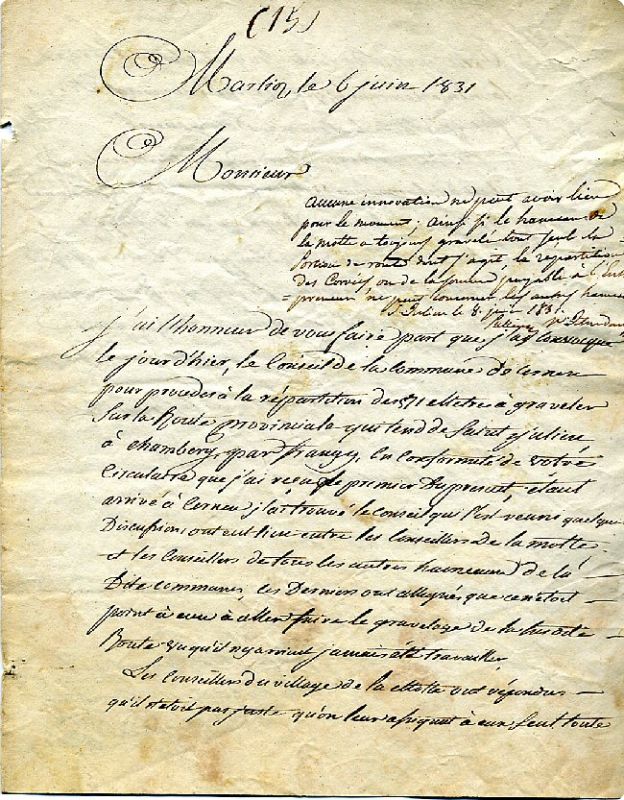 (15)
Marlioz, le 6 juin 1831
Monsieur
aucune innovation ne peut avoir lieu
pour le moment; ainsi si le hameau de
la motte a toujours gravelé tout seul la
Portion de route dont s'agit, la repartition
des Corvées ou de la somme payable à l'entre
=preneur ne peut concerner les autres hameaux
St Julien le 8 juin 1831.
j'ai l'honneur de vous faire part que j'ay convoqué
le jour d'hier, le Conseil de la Commune de Cernex
pour proceder à la répartition des 71 Mettre à graveler
Sur la Route provinciale qui tend de Saint julien
à chambery, par frangy, En Conformité de Votre
Circulaire que j'ai reçu le premier du present, étant
arrivé à Cernex j'ai trouvé le Conseil qui s'est reuni quelque
Discussions ont eut lieu entre les Conseillers De la motte
et les Conseillers de tous les autres hameaux de la
Dite Commune, ces Derniers ont allegués que ce n'étoit
point à eux à aller faire le gravelage de la susdite
Route vu qu'il n'y avoient jamais été travailler,
Les Conseillers du village de la Motte ont répondus
qu'il n'étoit pas juste qu'on leur assignat à eux seul toute